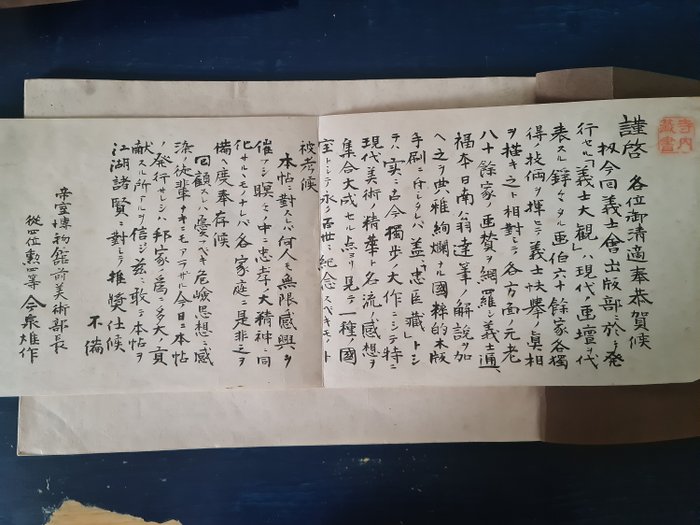 寺内
蔵書
謹啓　各位御清適奉恭賀候
扨今回義士會出版部ニ於テ発
行セル「義士大観」ハ現代ノ画壇ヲ代
表スル錚々タル画伯六十餘家各獨
得ノ技倆ヲ揮ヒテ義士快挙ノ真相
ヲ描キ之ト相對シテ各方面ノ元老
八十餘家ノ画賛ヲ網羅シ義士通
福本日南翁達筆ノ解説ヲ加
ヘ之ヲ典雅絢爛ナル國粋的木版
手刷ニ付シタレバ蓋シ忠臣蔵トシ
テハ実ニ古今獨歩ノ大作ニシテ特ニ
現代美術ノ精華ト名流ノ感想ヲ
集合大成セル点ヨリ見テ一種ノ國
宝トシテ永ク百世ニ紀念スベキモノト
被考候
本帖ニ對スレバ何人モ無限ノ感興ヲ
催フシ瞑々ノ中ニ忠孝ノ大精神ニ同
化サルヽモノナレバ各家庭ニ是非之ヲ
備ヘ度奉存候
回顧スレバ憂フベキ危険思想ニ感
染ノ徒輩ナキニモアラザル今日ニ本帖
ノ発行セラレシハ邦家ノ為ニ多大ノ貢
献スル所アルヲ信ジ茲ニ敢テ本帖ヲ
江湖諸賢ニ對シテ推奨仕候
不備
帝室博物館前美術部長
従四位勲四等　今泉雄作